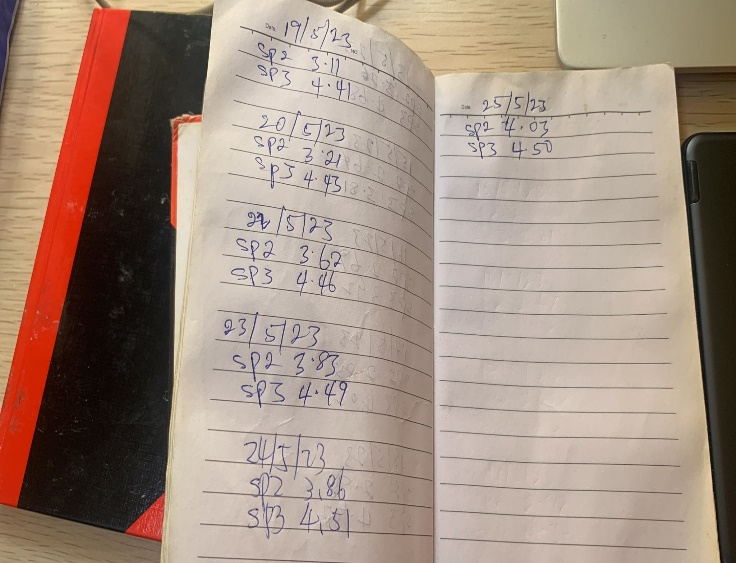 Date 19/5/23
sp2 3.11
sp3 4.41
20/5/23
sp2 3.21
sp3 4.43
22/5/23
sp2 3.62
sp3 4.46
23/5/23
sp2 3.83
sp3 4.49
24/5/23
sp2 3.86
sp3 4.51
Date 25/5/23
sp2 4.03
sp3 4 50